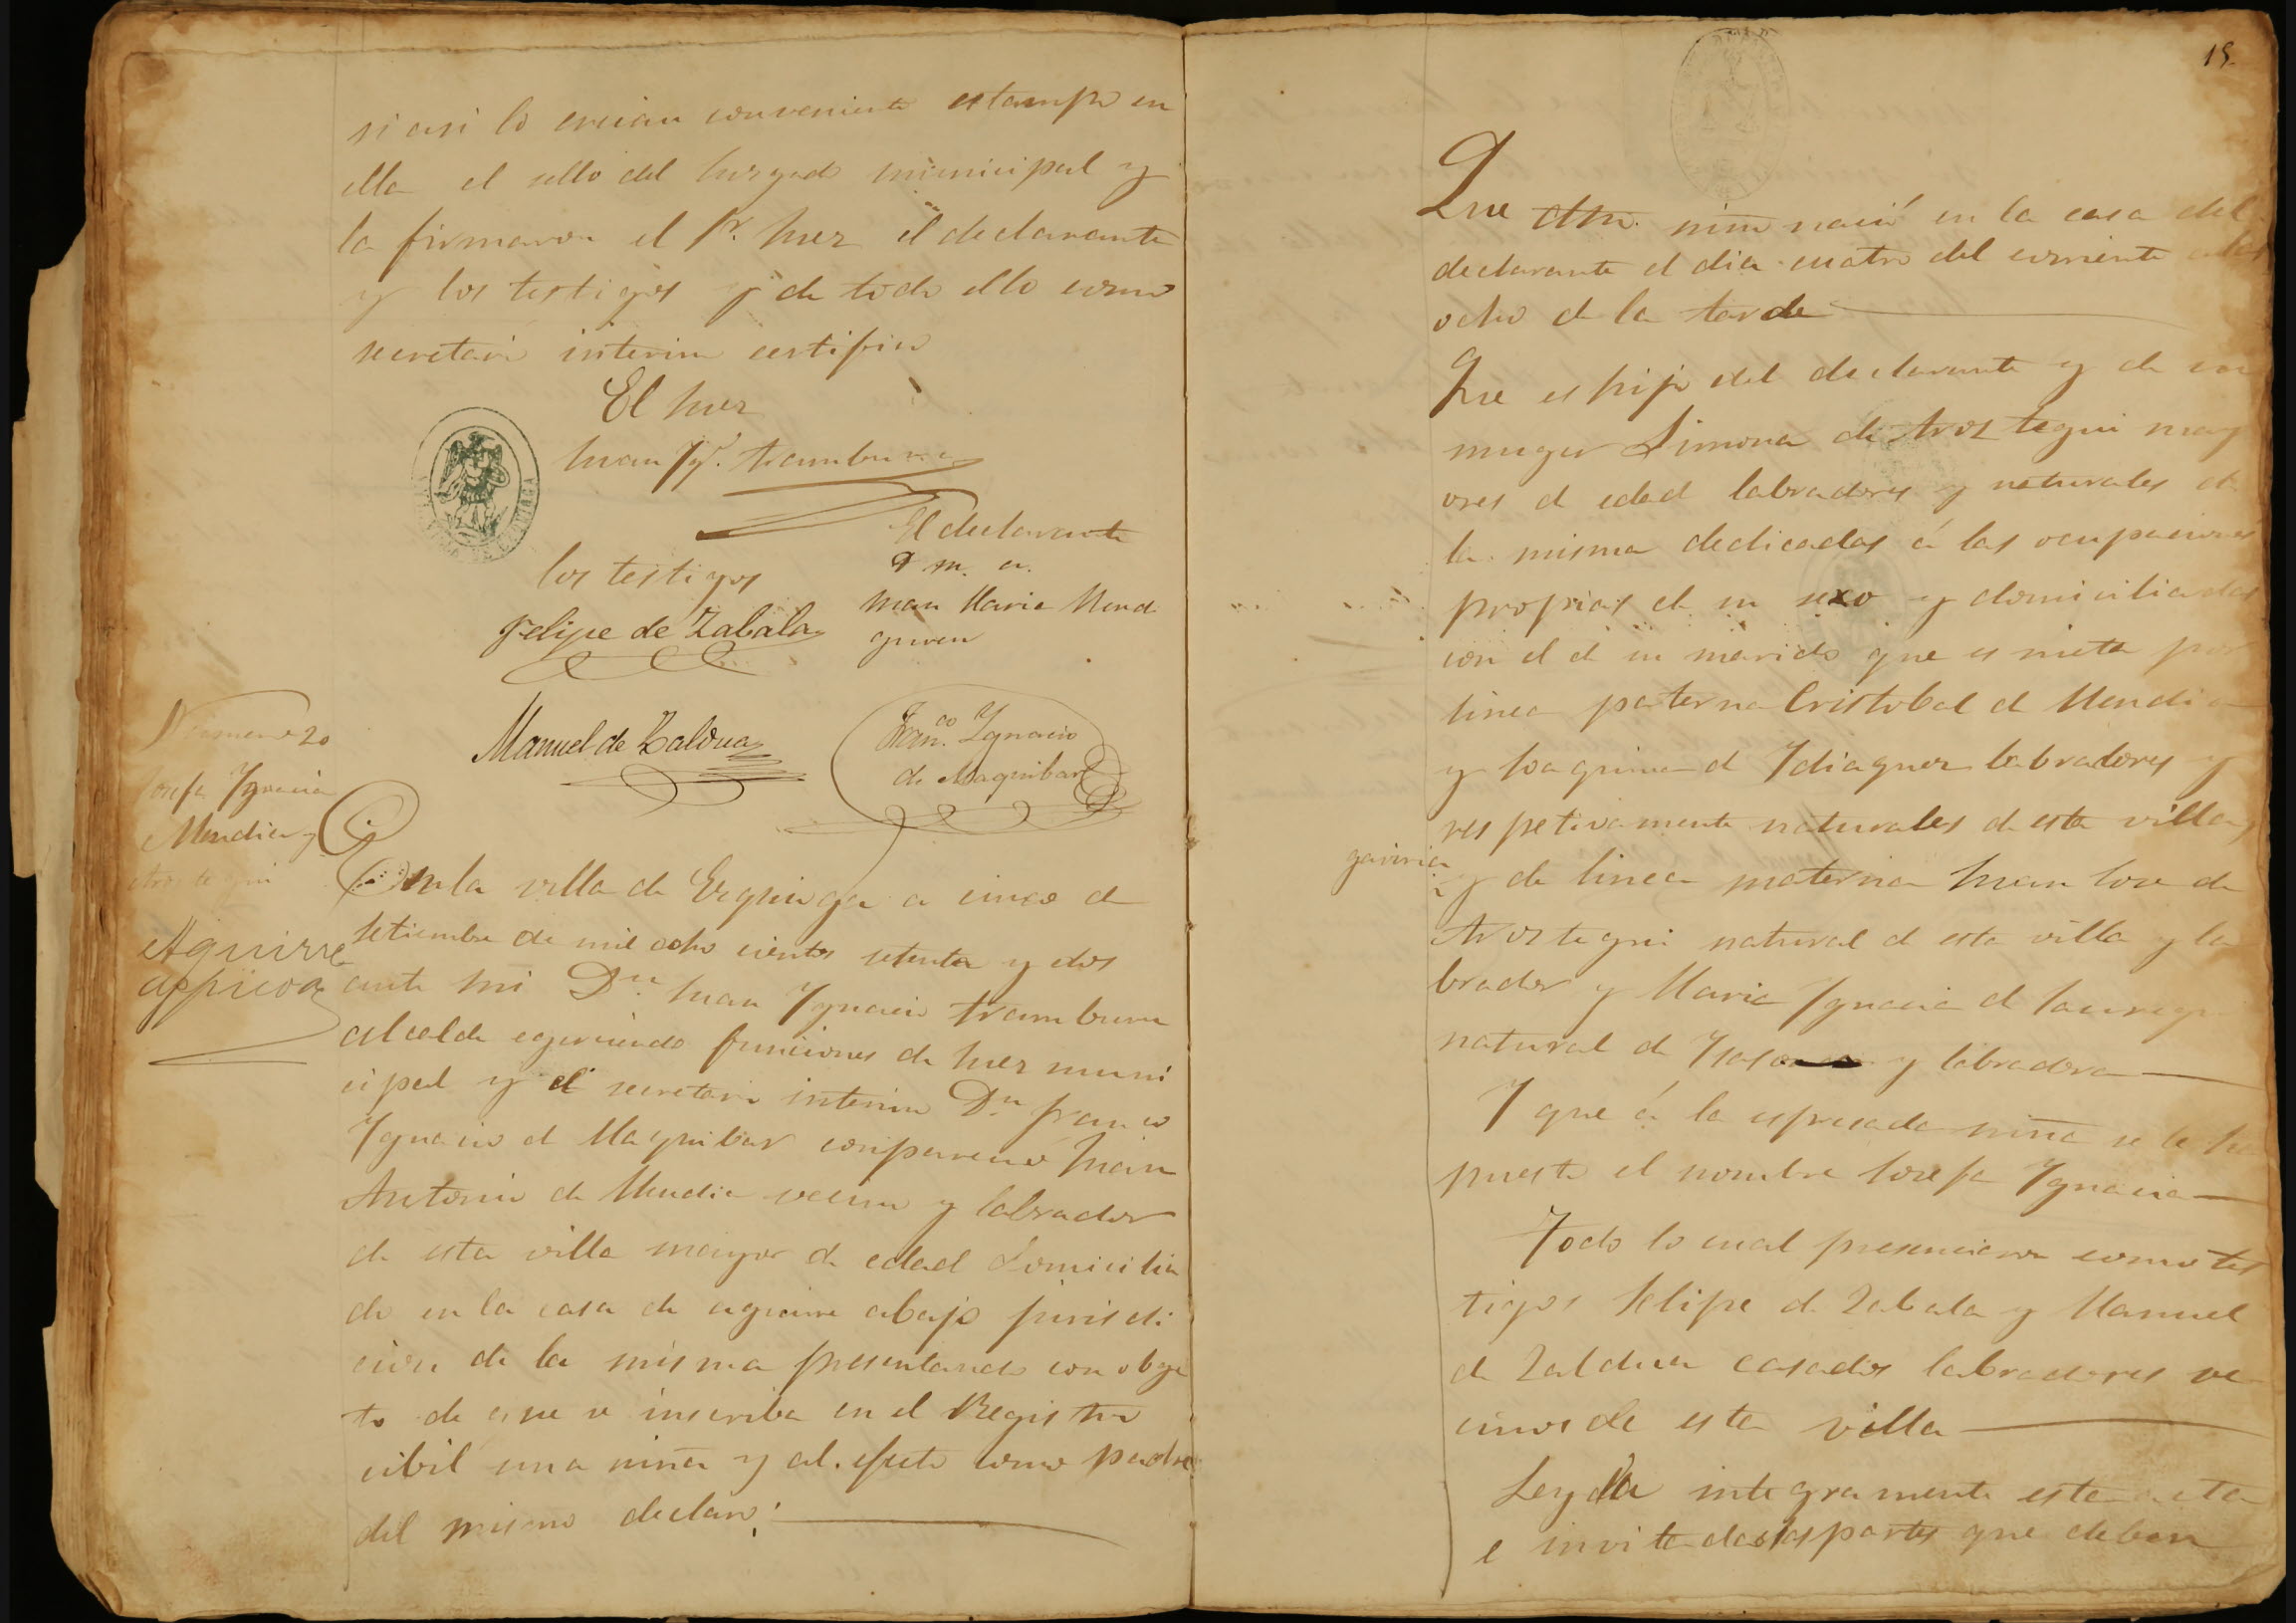 si asi lo creian conveniente estampo en
ella el sello del Juzgado municipal y
la firmaron el Sr. Juez el declarante
y los testigos y de todo ello como
secretario interino certifico
El Juez
Juan Yg. Aramburu
El declarante
los testigos
Juan Maria Mend
Felipe de Zabala
guren
Manuel de Zaldua
Fran.co Ygnacio
de Maquibar
Numero 20
Josefa Ygnacia
Mendia y
Arostegui
Aguirre
azpicoa
En la villa de Ezquioga a cinco de
Setiembre de mil ocho cientos setenta y dos
ante mi Dn Juan Ygnacio Aramburu
alcalde egerciendo funciones de Juez muni
cipal y el secretario interino Dn Franco
Ygnacio de Maquibar comparecio Juan
Antonio de Mendia vecino y labrador
de esta villa mayor de edad domicilia
do en la casa de aguirre abajo jurisdi
cion de la misma presentando con obge
to de que se inscriba en el Registro
cibil una niña y al efecto como padre
del mismo declaro:
15
Que dha. niña nació en la casa del
declarante el dia cuatro del corriente a las
ocho de la tarde
Que es hija del declarante y de su
muger Simona de Arostegui may
ores de edad labradores y naturales de
la misma dedicadas á las ocupaciones
propias de su sexo y domiciliadas
con el de su marido que es nieta por
linea paterna Cristobal de Mendia
y Joaquina de Ydiaquez labradores y
respetivamente naturales de esta villa y
gaviria
y de linea materna Juan Jose de
Arostegui natural de esta villa y la
brador y Maria Ygnacia de Jauregui
natural de y labradora
Y que á la espresada niña se le ha
puesto el nombre Josefa Ygnacia
Todo lo cual presenciaron como tes
tigos Felipe de Zabala y Manuel
de Zaldua casados labradores ve
cinos de esta villa
Leyda integramente esta acta
e invitadas las partes que deban